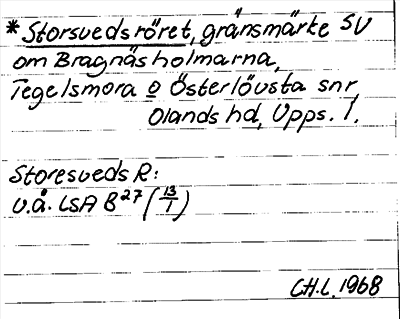 *Storsvedsröret, gränsmärke SV
om Bragnäsholmarna,
Tegelsmora o Österlövsta snr,
Olands hd, Upps. l.
Storesveds R:
u.å. LSA B 27 (13/1)
CH.L. 1968